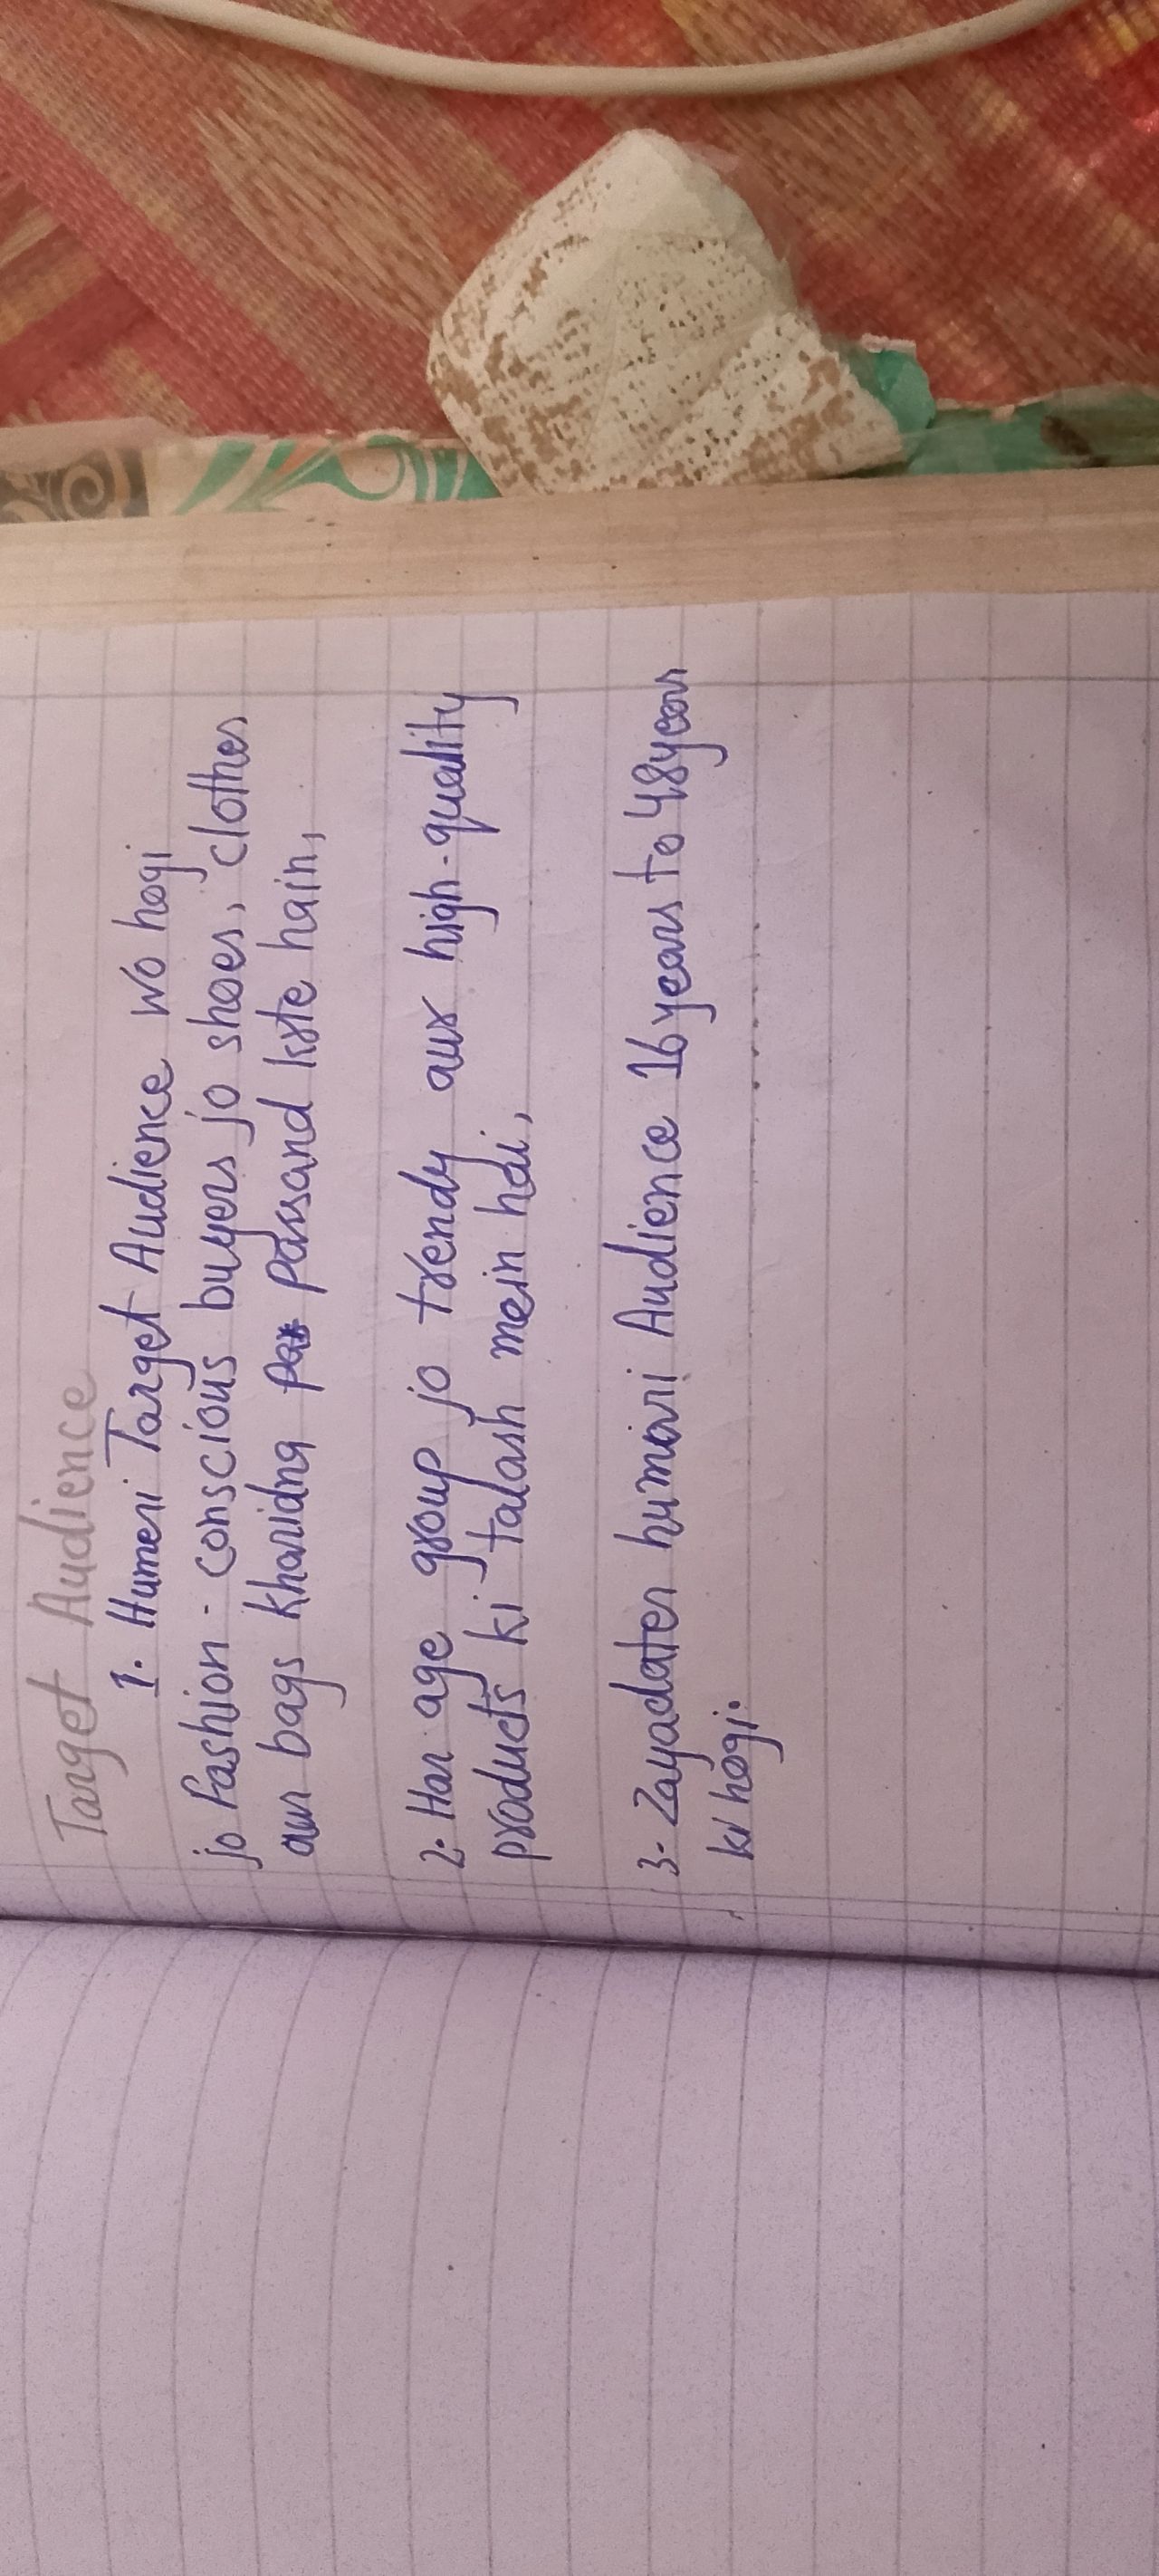 Target Audience
1. Humeri Target Audience wo hogi
jo Fashion - conscious buyers jo shoes, clothes
aur bags kharidna passand krte hain,
2. Har age group jo trendy aur high-quality
products ki talash mein hai,
3- Zayadater humari Audience 16 years to 48 years
ki hogi.